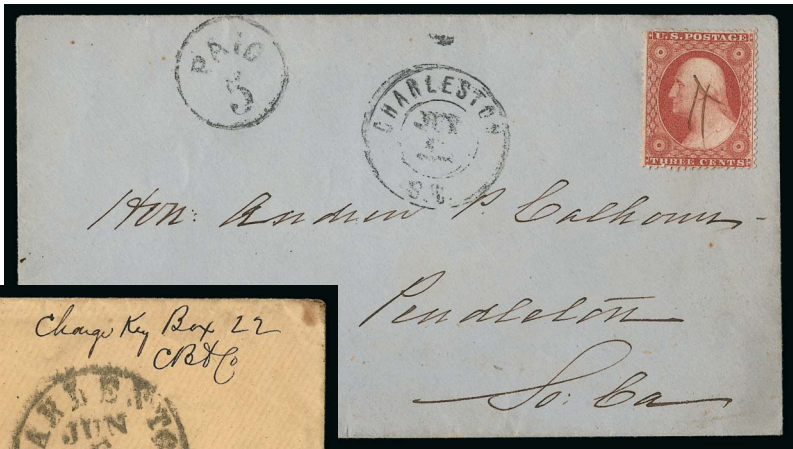 PAID
5
CHARLESTON
S.C.
U.S. POSTAGE
THREE CENTS
Hon: Andrew P. Calhoun
Pendleton
So: Ca
Charge Key Box 22
CB&Co
JUN